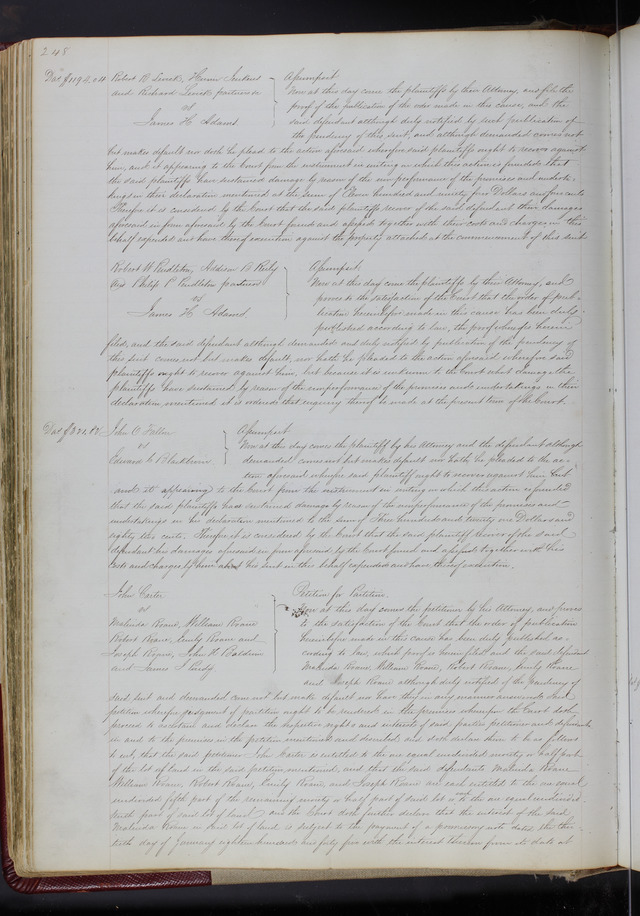 248
Dam. $1195.04 Robert B. , Hiram 
and Richard partners &c
vs
James H. Adams
Assumpsit
Now at this day came the plaintiffs by their Attorney, and file the
proof of the publication of the order made in this cause, and the
said defendant although duly notified by such publication of
the pendency of this suit, and although demanded comes not
but makes default nor doth he plead to the action aforesaid wherefore said plaintiffs ought to recover against
him, and it appearing to the Court from the instrument in writing on which this action is founded that
the said plaintiffs have sustained damage by reason of the non performance of the promises and underta-
kings in their declaration mentioned to the sum of Eleven hundred and ninety five Dollars and four cents
Therefore it is considered by the Court that the said plaintiffs recover of the said defendant their damages
aforesaid in form aforesaid by the Court found and assessed together with their costs and charges in this
behalf expended and have thereof execution against the property attached at the commencement of this suit
Robert W. Pendleton, Addison B. Riely
and Philip P. Pendleton partners
vs
James H. Adams
Assumpsit
Now at this day came the plaintiffs by their Attorney, and
proves to the satisfaction of the Court that the order of pub-
lication heretofore made in this cause has been duly
published according to law, the proof whereof is herein
filed, and the said defendant although demanded and duly notified by publication of the pendency of
this suit comes not but makes default, nor hath he pleaded to the action aforesaid wherefore said
plaintiffs ought to recover against him, but because it is unknown to the Court what damage the
plaintiffs have sustained by reason of the nonperformance of the promises and undertakings in their
declaration mentioned it is ordered that enquiry thereof be made at the present term of the Court.
John C. 
vs
Edward C. Blackburn
Assumpsit
Now at this day comes the plaintiff by his Attorney and the defendant although
demanded comes not but makes default nor hath he pleaded to the ac-
tion aforesaid wherefore said plaintiff ought to recover against him 
and it appearing to the Court from the instrument in writing on which this action is founded
that the said plaintiff has sustained damage by reason of the nonperformance of the promises and
undertakings in his declaration mentioned to the sum of Three hundred and twenty one Dollars and
eighty cents. Therefore it is considered by the Court that the said plaintiff recover of the said
defendant his damages aforesaid in form aforesaid by the Court found and assessed together with his
costs and charges by him about his suit in this behalf expended and have thereof execution.
John Carter
vs
Malinda Roane, William Roane
Robert Roane, Emily Roane and
Joseph Roane, John H. Baldwin
and James S. 
Petition for Partition.
Now at this day comes the petitioner by his Attorney, and proves
to the satisfaction of the Court that the order of publication
heretofore made in this cause has been duly published ac-
cording to law, which proof is herein filed and the said defendants
Malinda Roane, William Roane, Robert Roane, Emily Roane
and Joseph Roane although duly notified of the pendency of
said suit and demanded came not but make default nor have they in any manner answered said
petition wherefore judgment of partition ought to be rendered in the premises wherefore the Court doth
proceed to ascertain and declare the respective rights and interests of said parties petitioner and defendants
in and to the premises in the petition mentioned and described, and doth declare them to be as follows
to wit, that the said petitioner John Carter is entitled to the one equal undivided moiety or half part
of the lot of land in the said petition mentioned, and that the said defendants Malinda Roane
William Roane, Robert Roane, Emily Roane, and Joseph Roane are each entitled to the one equal
undivided fifth part of the remaining moiety or half part of said lot or to the one equal undivided
tenth part of said lot of land and the Court doth further declare that the interest of the said
Malinda Roane in said lot of land is subject to the payment of a promissory note dated the 
day of January eighteen hundred and forty five with the interest thereon from its date at